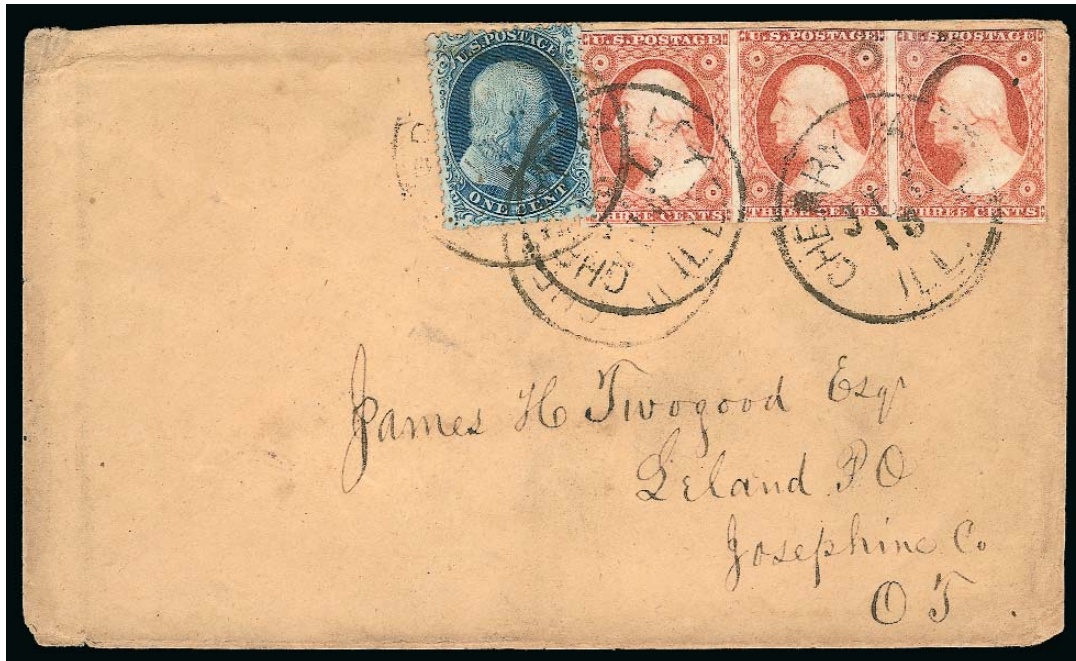 U.S. POSTAGE
ONE CENT
U.S. POSTAGE
THREE CENTS
U.S. POSTAGE
THREE CENTS
U.S. POSTAGE
THREE CENTS
CHERRY VA
JUL
18
ILL.
ILL.
James H Twogood Esqr
Leland PO
Josephine Co
O T